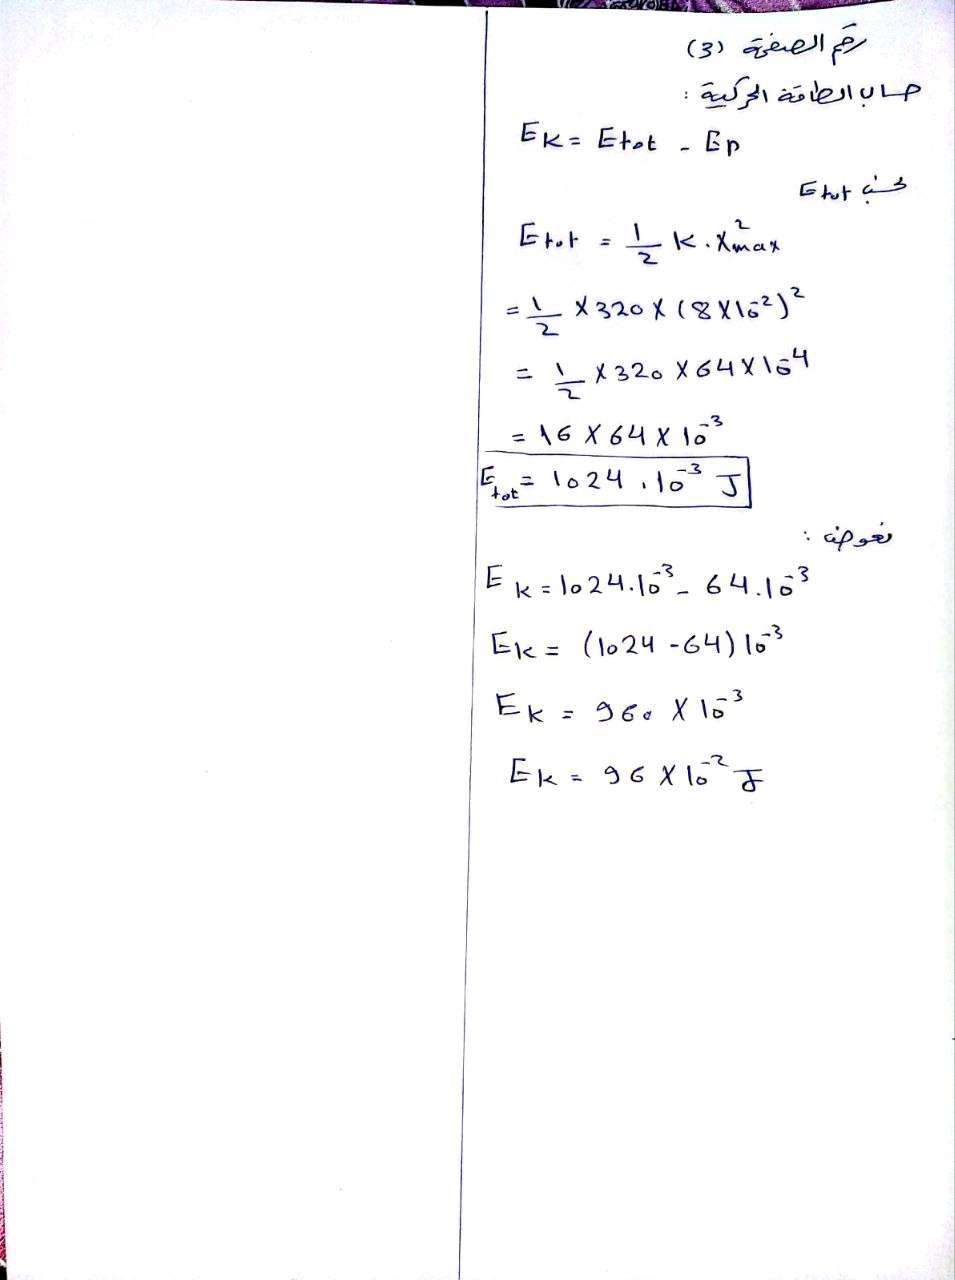 رقم الصفحة (3)
حساب الطاقة الحركية :
EK = Etot - Ep
نحسب Etot
Etot = 1/2 K . X²max
= 1/2 × 320 × (8 × 10⁻²)²
= 1/2 × 320 × 64 × 10⁻⁴
= 16 × 64 × 10⁻³
Etot = 1024 . 10⁻³ J
نعوض :
EK = 1024.10⁻³ - 64.10⁻³
EK = (1024 - 64) 10⁻³
EK = 960 × 10⁻³
EK = 96 × 10⁻² J